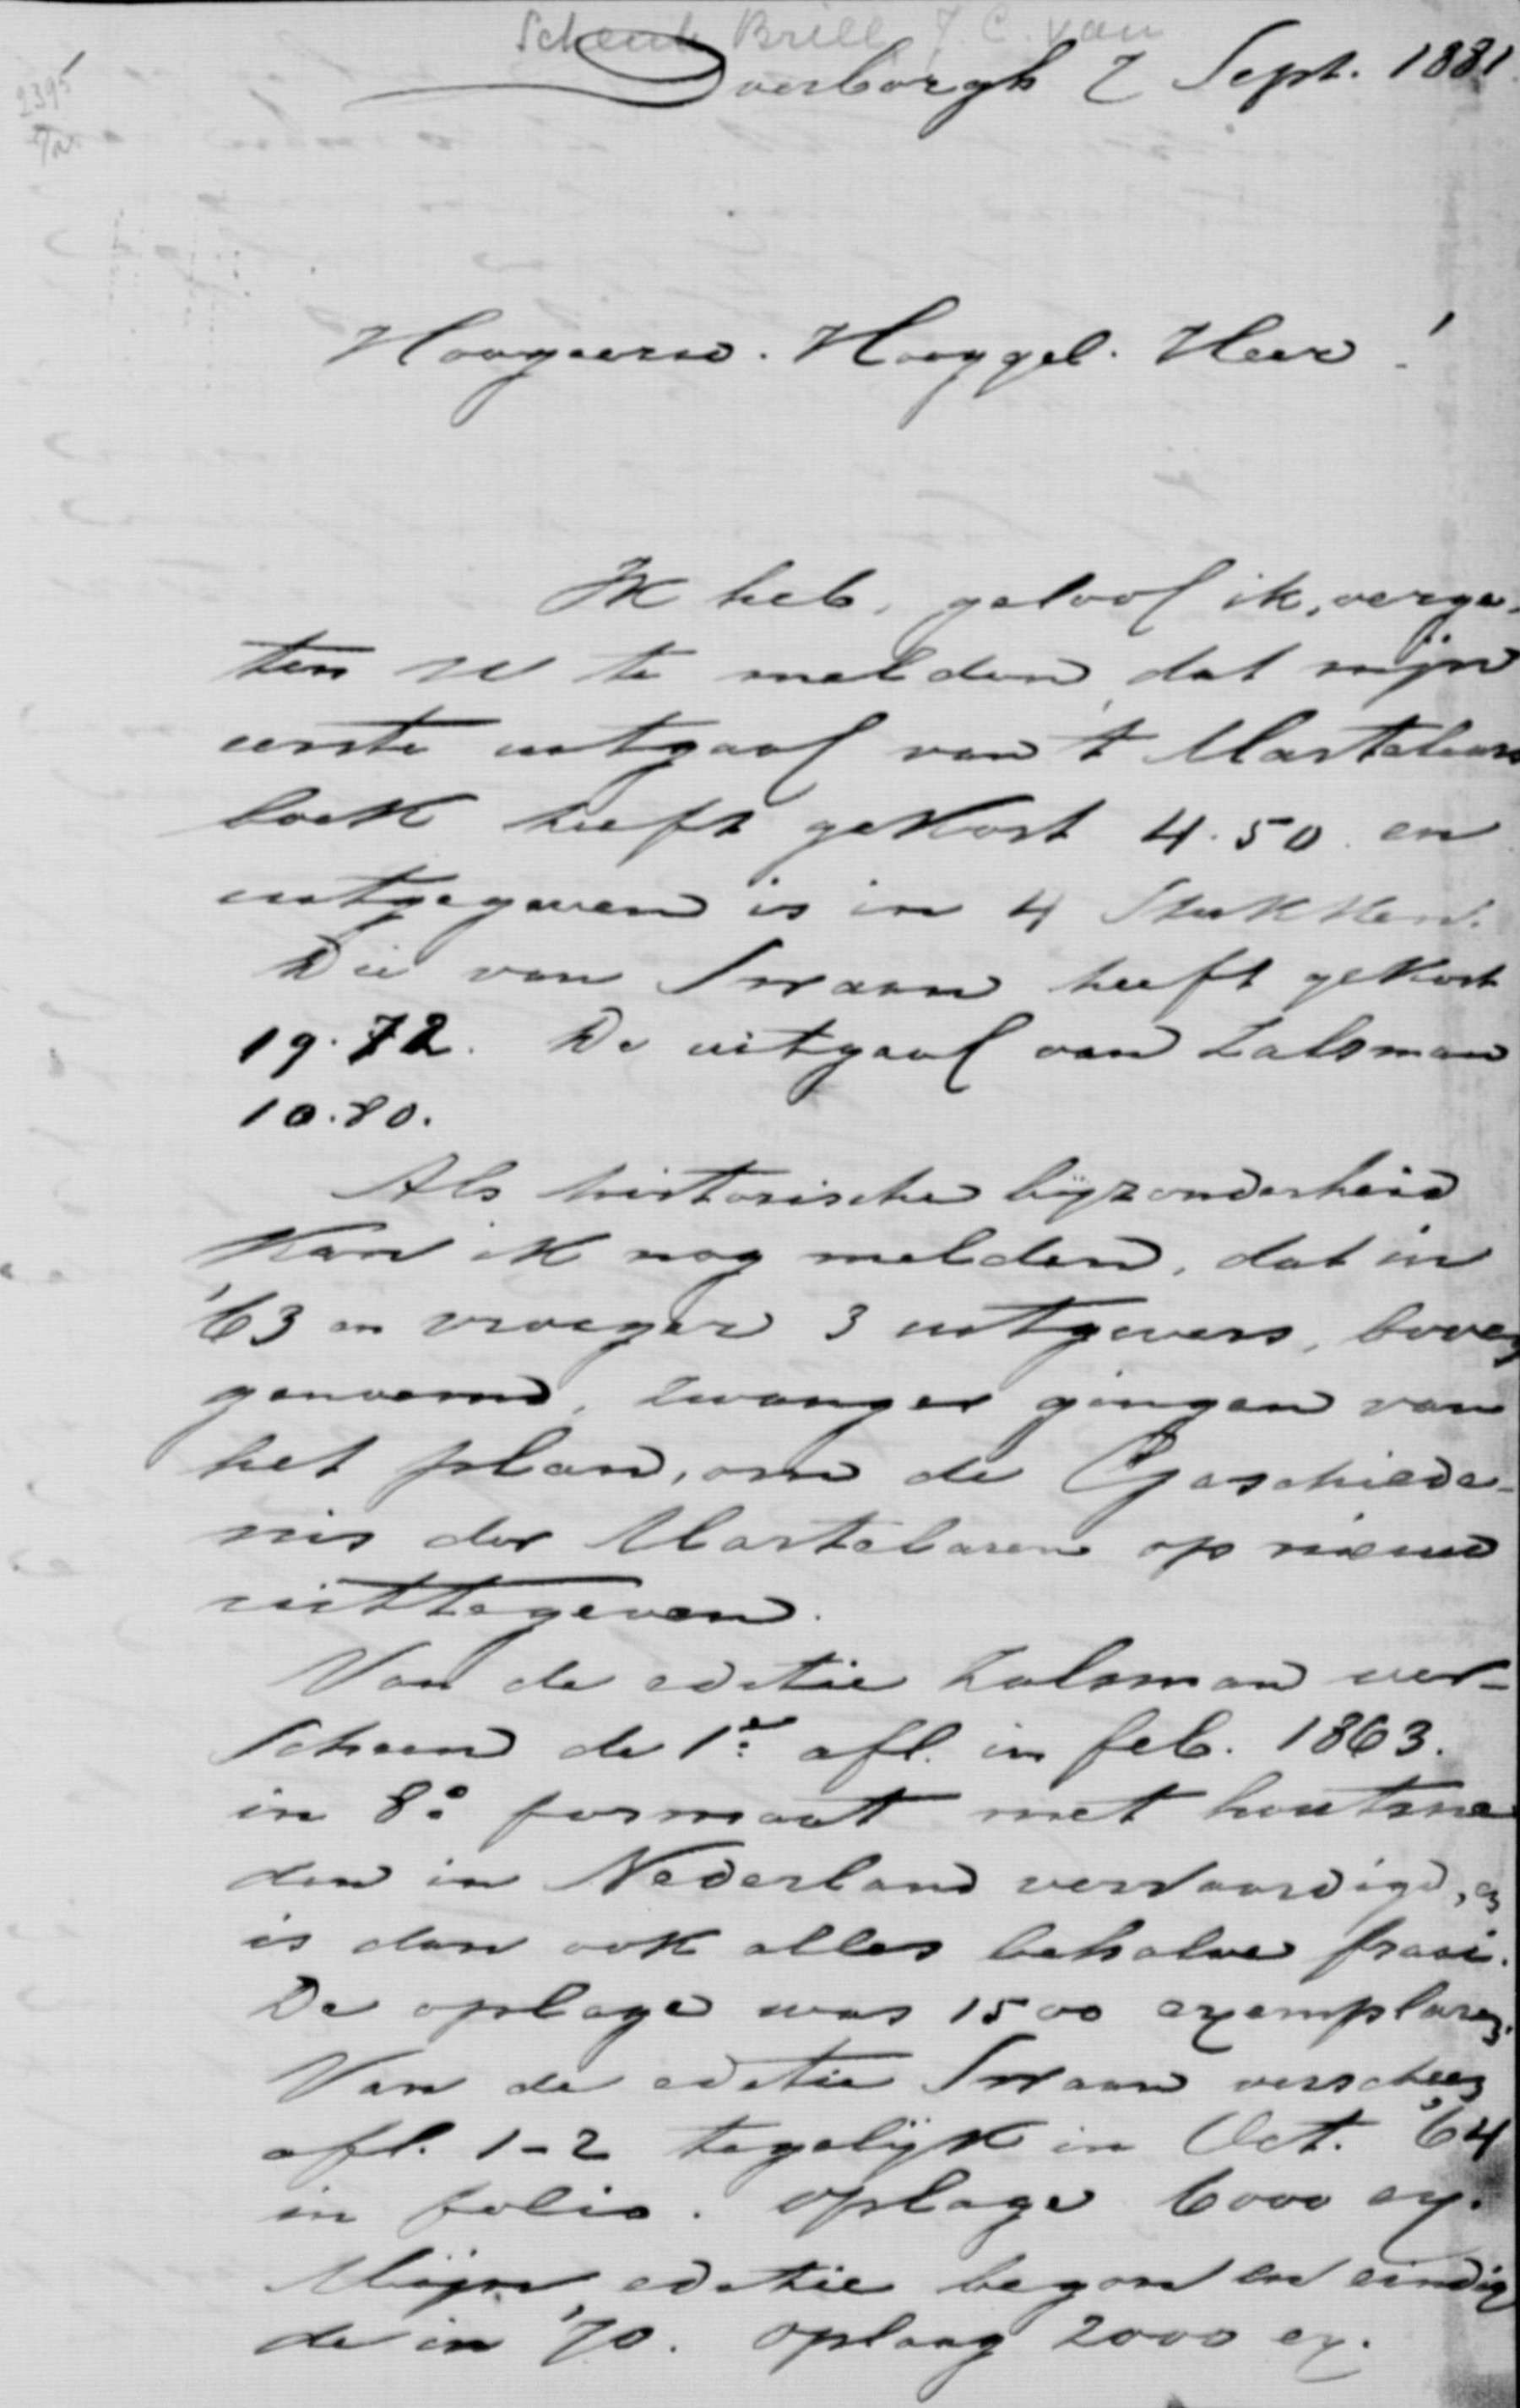 Schenk Brill, J. C. van
2395
Doesborgh 7 Sept. 1881
Hoogeerw. Hooggel. Heer!
Ik heb, geloof ik, verge-
ten U te melden dat mijn
eerste uitgaaf van 't Martelaars
boek heeft gekost 4.50 en
uitgegeven is in 4 Stukken.
Die van Swaan heeft gekost
19.72. De uitgaaf van Zalsman
10.80.
Als historische bijzonderheid
kan ik nog melden, dat in
'63 en vroeger 3 uitgevers, boven
genoemd, zwanger gingen van
het plan, om de Geschiede-
nis der Martelaren op nieuw
uittegeven.
Van de editie Zalsman ver-
scheen de 1e afl. in feb. 1863.
in 8o formaat met houtsne
den in Nederland vervaardigd, en
is dan ook alles behalve fraai.
De oplage was 1500 exemplaren.
Van de editie Swaan verscheen
afl. 1-2 tegelijk in Oct. '64
in folio. oplage 6000 ex.
Mijn editie begon en eindig
de in '70. oplaag 2000 ex.